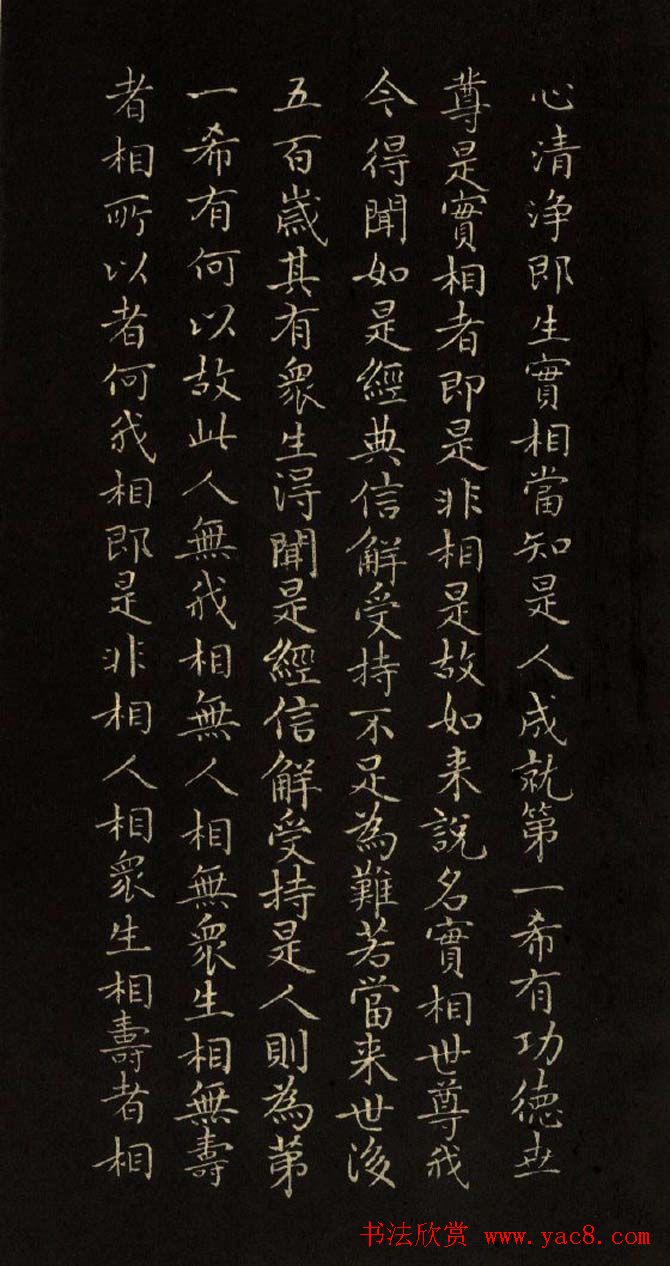 心清淨即生實相當知是人成就第一希有功德世
尊是實相者即是非相是故如来說名實相世尊我
今得聞如是經典信解受持不足為難若當来世後
五百歲其有衆生淂聞是經信解受持是人則為第
一希有何以故此人無我相無人相無衆生相無壽
者相所以者何我相即是非相人相衆生相壽者相
书法欣赏 www.yac8.com